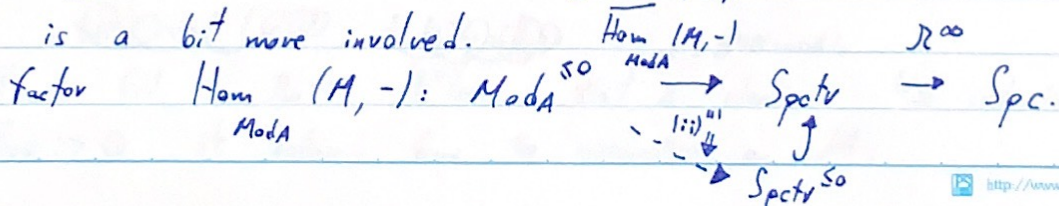 is a bit more involved. Hom (M,-) Ω∞
ModA
factor Hom (M,-): ModA≤0 → Spctr → Spc.
ModA
(ii)"'
Spctr≤0
http://www